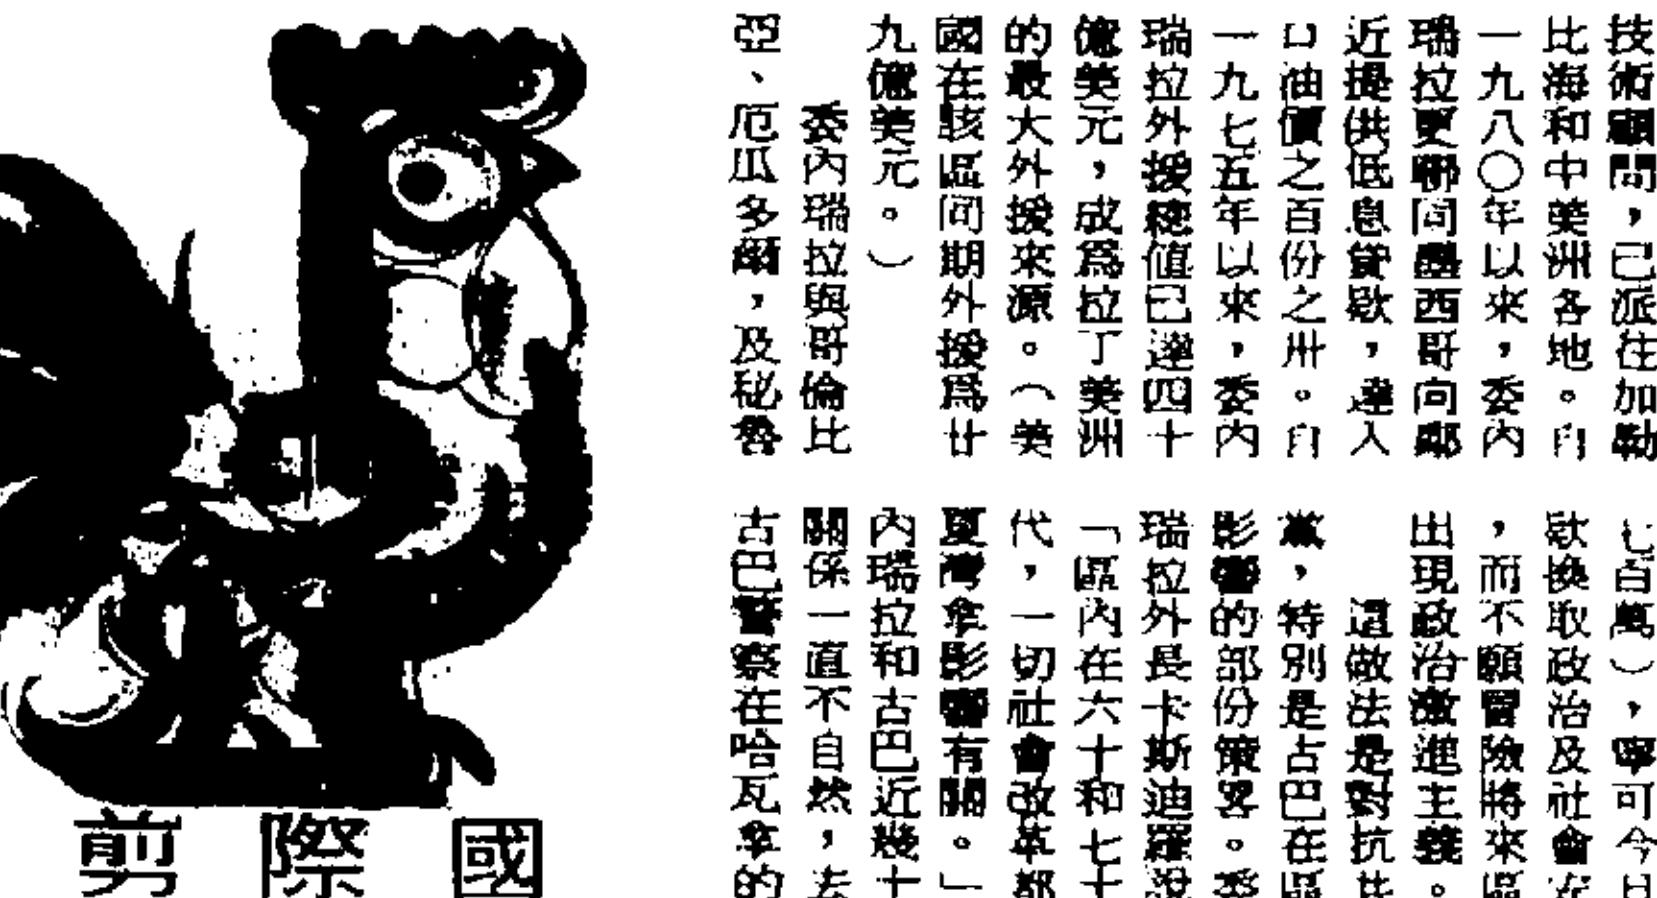 技術顧問，已派往加勒
比海和中美洲各地。自
一九八〇年以來，委內
瑞拉更聯同墨西哥向鄰
近提供低息貸款，達入
口油價之百份之卅。自
一九七五年以來，委內
瑞拉外援總值已達四十
億美元，成爲拉丁美洲
的最大外援來源。（美
國在該區同期外援爲廿
九億美元。）
委內瑞拉與哥倫比
亞、厄瓜多爾，及秘魯
七百萬），寧可今日
款換取政治及社會安
，而不願冒險將來區
出現政治激進主義。
這做法是對抗共
黨，特別是古巴在區
影響的部份策畧。委
瑞拉外長卡斯迪羅說
「區內在六十和七十
代，一切社會改革都
夏灣拿影響有關。」
內瑞拉和古巴近幾十
關係一直不自然，去
古巴警察在哈瓦拿的
國際剪